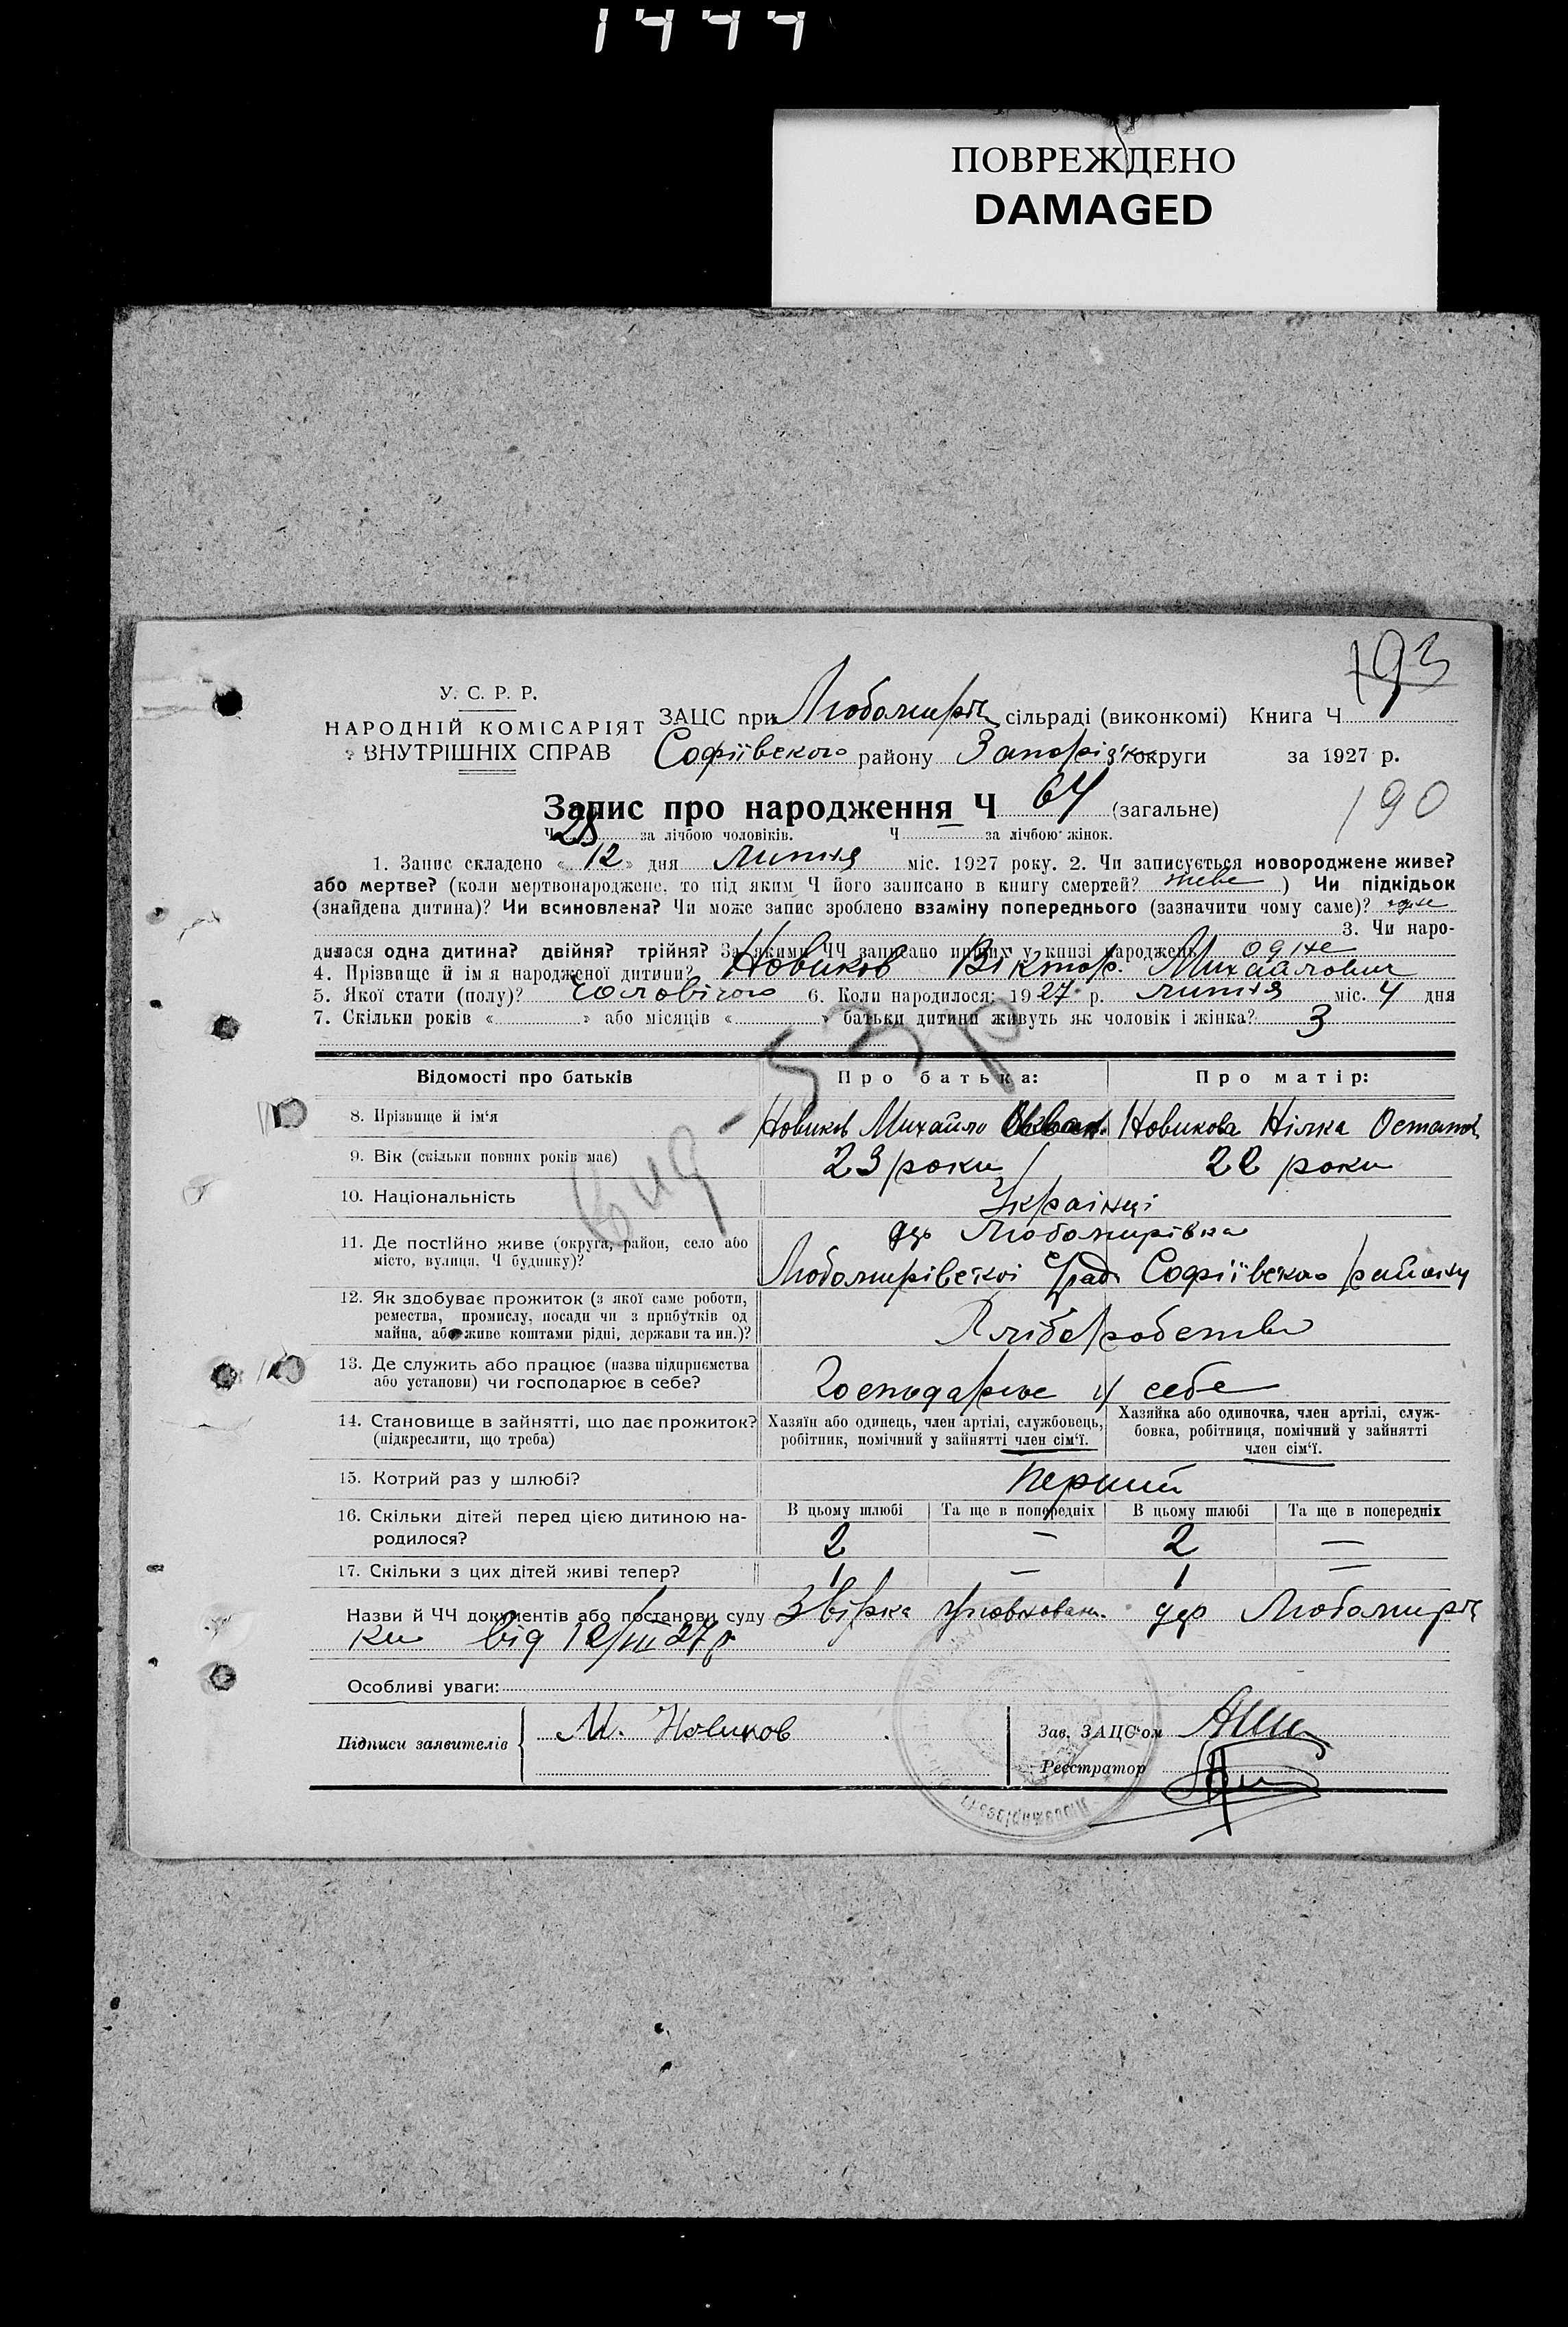 1444
ПОВРЕЖДЕНО
DAMAGED
193
У. С. Р. Р.
НАРОДНІЙ КОМІСАРІЯТ
ВНУТРІШНІХ СПРАВ
ЗАЦС при Любомирів. сільраді (виконкомі) Книга Ч
Софіївского району Запоріз'к округи за 1927 р.
Запис про народження Ч 64 (загальне)
190
Ч 28 за лічбою чоловіків. Ч — за лічбою жінок.
1. Запис складено « 12 » дня Липня міс. 1927 року. 2. Чи записується новороджене живе?
або мертве? (коли мертвонароджене, то під яким Ч його записано в книгу смертей? живе ) Чи підкідьок
(знайдена дитина)? Чи всиновлена? Чи може запис зроблено взаміну попереднього (зазначити чому саме)?
3. Чи наро-
дилася одна дитина? двійня? трійня? За якими ЧЧ записано инших у книзі народжень одне
4. Прізвище й ім я народженої дитини? Новиков Віктор. Михайлович
5. Якої стати (полу)? Чоловічого 6. Коли народилося: 1927 р. липня міс. 4 дня
7. Скільки років « » або місяців « » батьки дитини живуть як чоловік і жінка? 3
Вид - 53 р
Відомості про батьків Про батька: Про матір:
8. Прізвище й ім'я Новиков Михайло Новикова Нілка Остапов.
9. Вік (скільки повних років має) 23 роки 22 роки
10. Національність Українці
11. Де постійно живе (округа, район, село або місто, вулиця, Ч будинку)? дер Любомирівка
Любомирівскої С/ради Софіївского району
12. Як здобуває прожиток (з якої саме роботи, ремества, промислу, посади чи з прибутків од майна, або живе коштами рідні, держави та ин.)? Хліборобство
13. Де служить або працює (назва підприємства або установи) чи господарює в себе? Господарює у себе
14. Становище в зайнятті, що дає прожиток? (підкреслити, що треба)
Хазяїн або одинець, член артілі, службовець, робітник, помічний у зайнятті член сім'ї.
Хазяйка або одиночка, член артілі, служ-
бовка, робітниця, помічний у зайнятті
член сім'ї.
15. Котрий раз у шлюбі? перший
В цьому шлюбі Та ще в попередніх В цьому шлюбі Та ще в попередніх
16. Скільки дітей перед цією дитиною на-
родилося? 2 — 2 —
17. Скільки з цих дітей живі тепер? 1 — 1 —
Назви й ЧЧ документів або постанови суду Звірка уповнован. дер Любомирів
ки від 12/VII 27 р
Особливі уваги:
Підписи заявителів М. Новиков
Зав. ЗАЦС'ом
Реєстратор